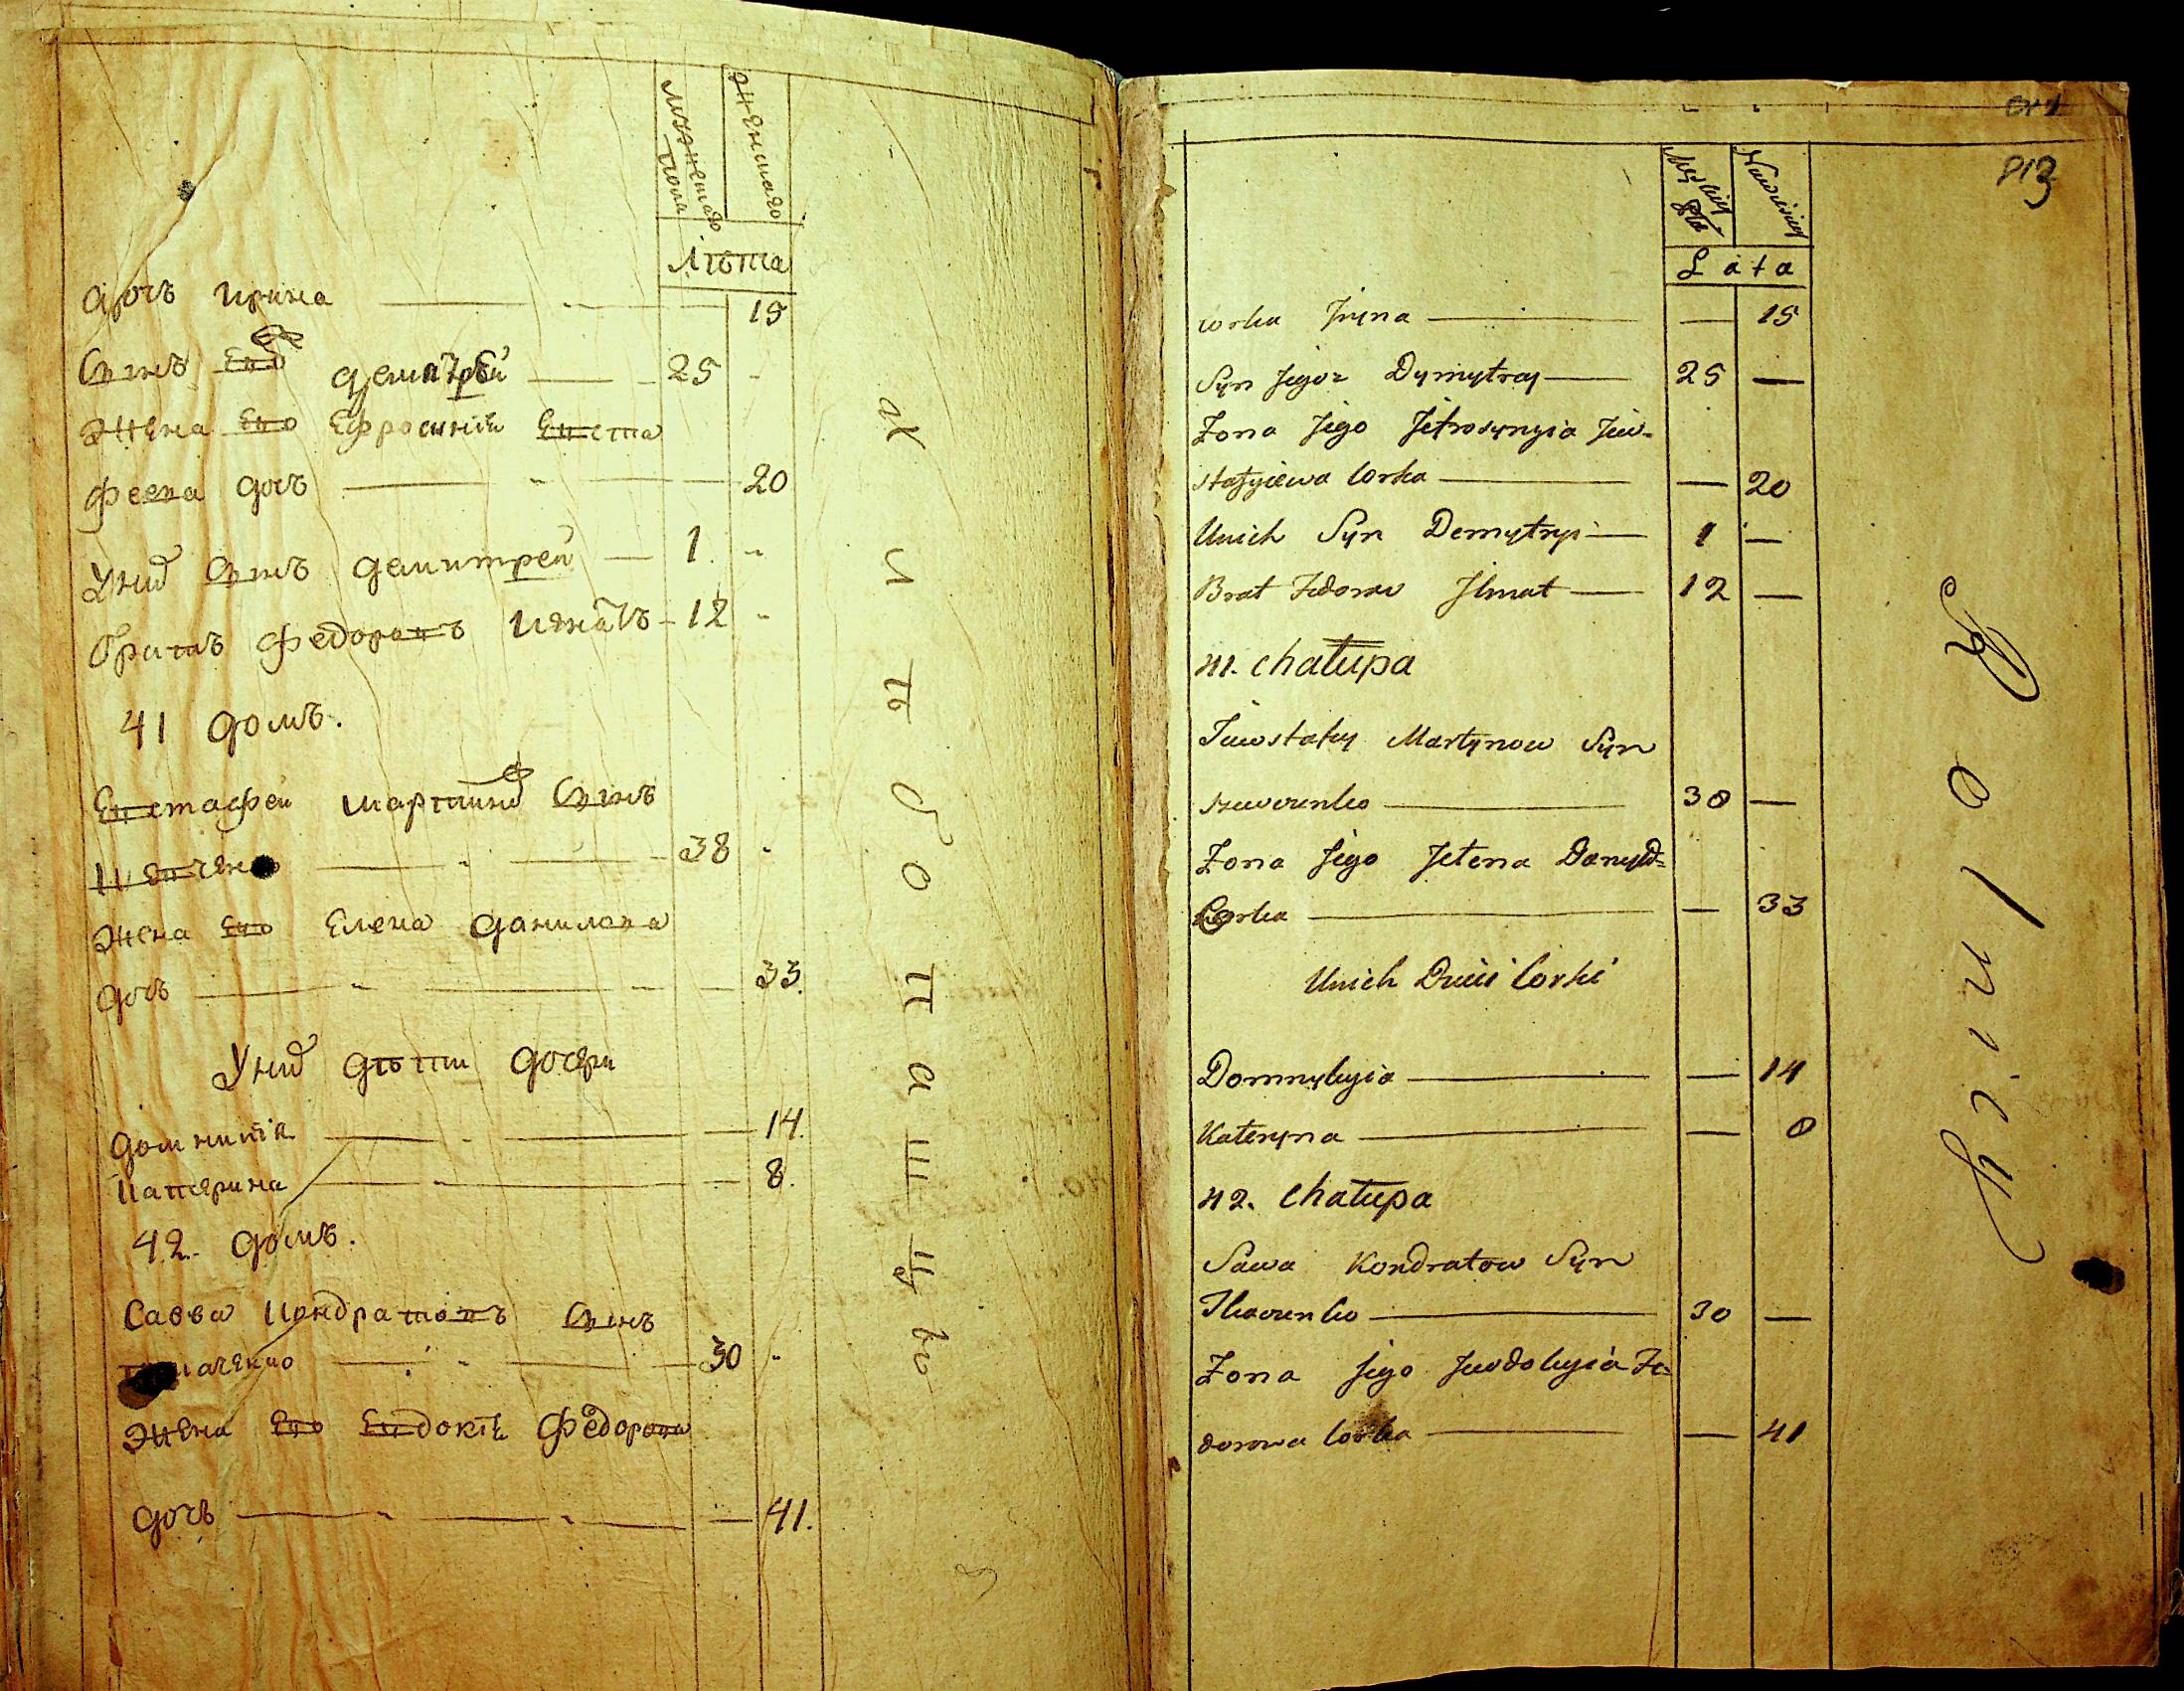 Мужескаго пола
Женскаго
Лѣта
дочъ Ирина 15
Сынъ Его Демитрей 25
Жена Его Ефросинія Евста
феева дочъ 20
У них Сынъ Демитрей 1
братъ Федоровъ Игнатъ 12
41 домъ.
Евстафей Мартинов Сынъ
Шевченко 38
Жена Его Елена Данилова
дочъ 33.
У них дѣти дочери
Домникія 14.
Катерина 8.
42. домъ.
Савва Кондратовъ Сынъ
Ткаченко 30
Жена Его Евдокія Федорова
дочъ 41.
Męskiej Płci
Lata
813
corka Iryna — 15
Syn Jego Dymytrey 25 —
Zona Jego Jefrosynyia Jew-
stafyiewa Corka — 20
Unich Syn Demytryi 1 —
Brat Fedorow Ihnat 12 —
41. Chałupa
Jewstafiy Martynow Syn
Szewczenko 38 —
Zona Jego Jełena Danyło-
Corka — 33
Unich Dzieci Corki
Domnykyia — 14
Kateryna — 8
42. Chałupa
Sawa Kondratow Syn
Tkaczenko 30 —
Zona Jego Jewdokyia Fe-
dorowa Corka — 41
Rolnich